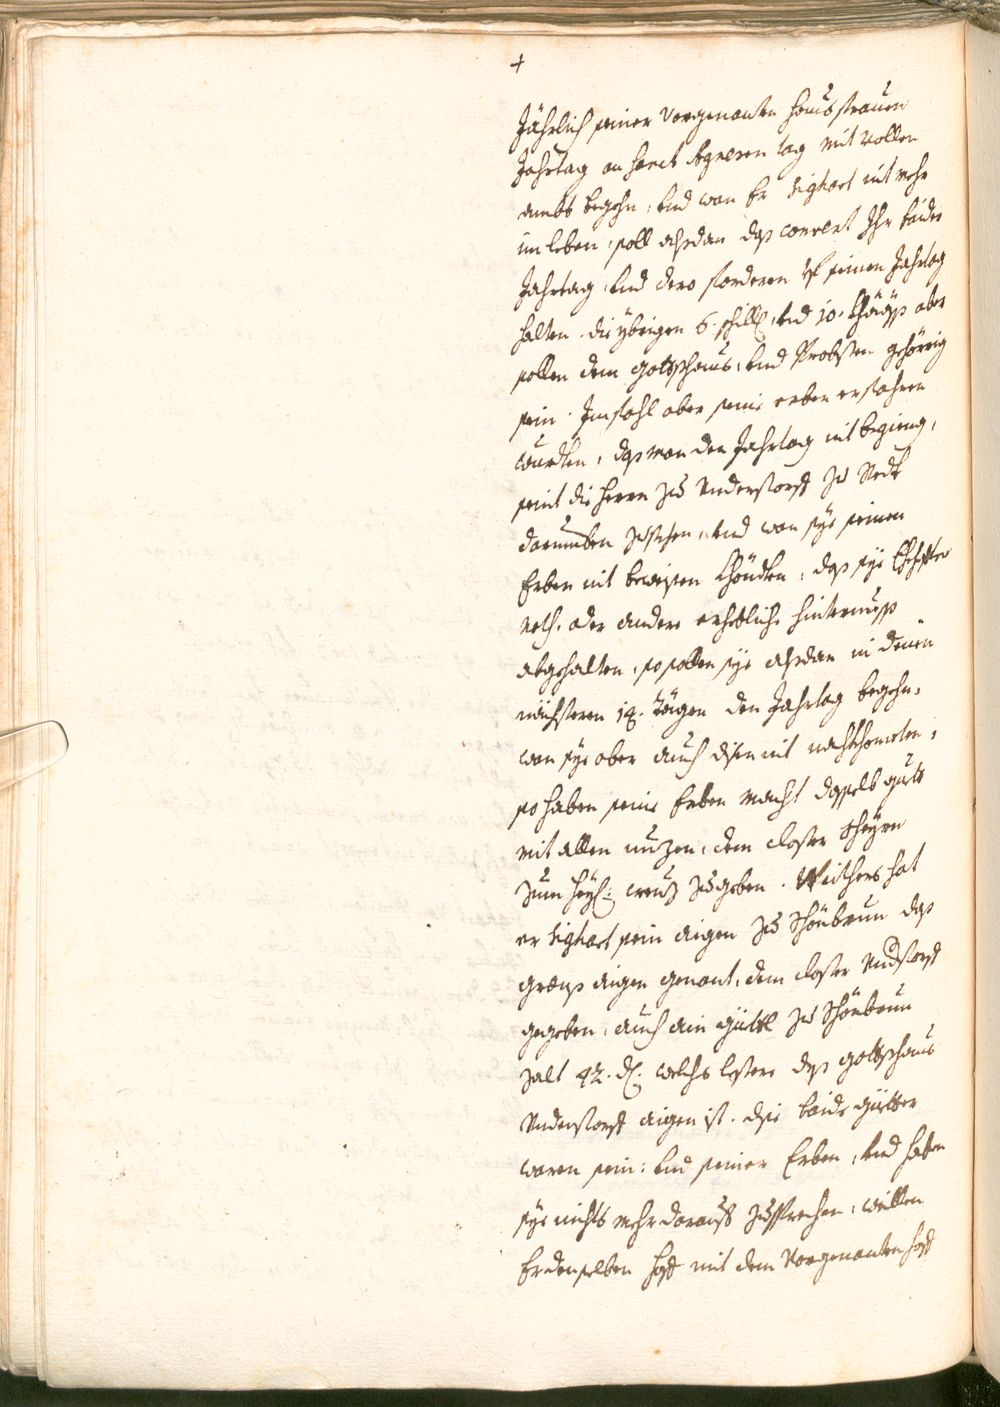 +
Jährlich seiner vorgenanten Hausfrauen
Jahrtag an Sanct Agnesen tag mit vollen
ambt begehn, und wan Er Sighart nit mehr
im leben, soll alßdan daß Convent Ihr beider
Jahrtag, und dero forderen uf seinen Jahrtag
halten. die ybrigen 6. schill. und 10. aber
sollen dem Gottshaus, und Probsten gehörrig
sein. Im fahl aber seine erben erfahren
wurdten, daß man den Jahrtag nit begieng,
seint die Herrn zu Understorff zu Redt
darumben zusezen, und wan sye seinen
Erben nit beweisen khöndten, daß sye Ehehafte
noth, oder andere erhebliche hinternuß
abgehalten, so sollen sye alßdan in denen
nächsteren 14. Tägen den Jahrtag begehn,
wan sye aber auch disen nit nachkhometen,
so haben seine Erben macht dasselb guett
mit allen nuzen, dem closter Scheyrn
zum Heyl: creuz zugeben. Weithers hat
er Sighart sein aigen zu Schönbrun daß
genant, dem closter Understorff
gegeben, auch ain güettl zu Schönbrun
zalt 42. d. welches lestere deß Gottshaus
Understorff aigen ist. dise baide güetter
waren sein: und seiner Erben, und haben
sye nichts mehr darauf zusprechen, wellen
Er denselben hoff mit dem vorgenanten hoff